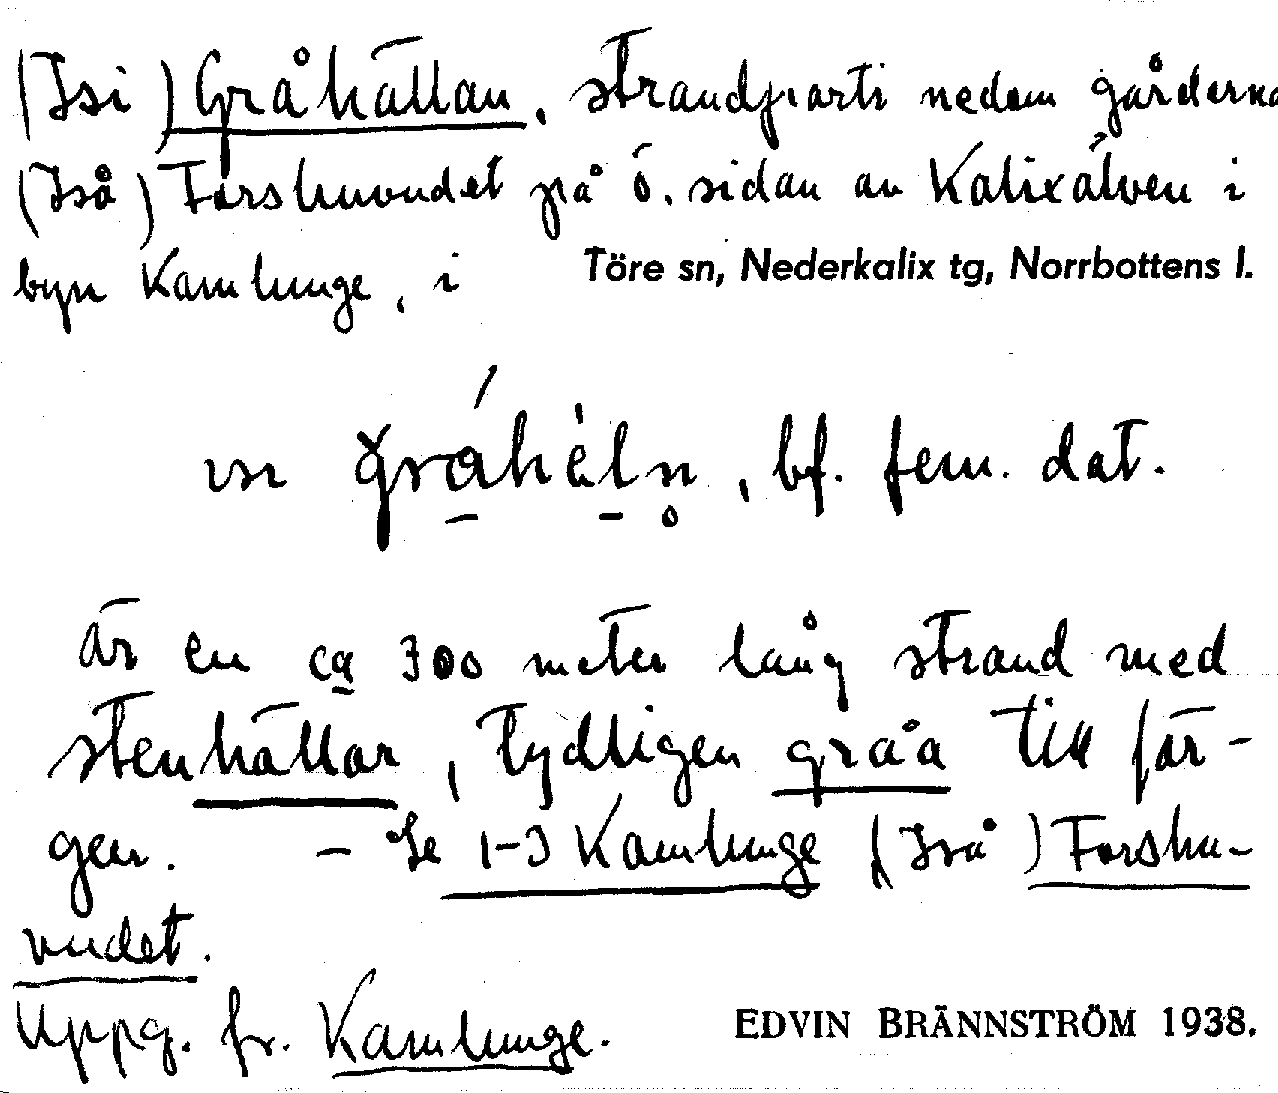 (Isi) Gråhällan, strandparti nedom gårderna
(Iså) Forshuvudet på ö. sidan av Kalixälven i
byn Kamlunge, i Töre sn, Nederkalix tg, Norrbottens l.
bf. fem. dat.
är en ca 300 meter lång strand med
stenhällar, tydligen gråa till fär-
gen. – Se 1-3 Kamlunge (Iså) Forshu-
vudet.
Uppg. fr. Kamlunge. EDVIN BRÄNNSTRÖM 1938.